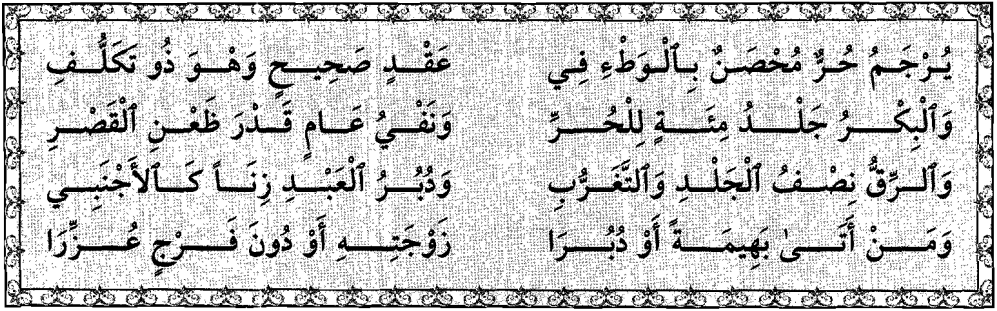 يُرْجَمُ حُرٌّ مُحْصَنٌ بِٱلْوَطْءِ فِي عَقْدٍ صَحِيحٍ وَهْوَ ذُو تَكَلُّفِ
وَٱلْبِكْرُ جَلْدُ مِئَةٍ لِلْحُرِّ وَنَفْيُ عَامٍ قَدْرَ ظَعْنِ ٱلْقَصْرِ
وَٱلرِّقُّ نِصْفُ ٱلْجَلْدِ وَٱلتَّغَرُّبِ وَدُبُرُ ٱلْعَبْدِ زِنَاً كَٱلأَجْنَبِي
وَمَنْ أَتَىٰ بَهِيمَةً أَوْ دُبُرَا زَوْجَتِهِ أَوْ دُونَ فَرْجٍ عُزِّرَا